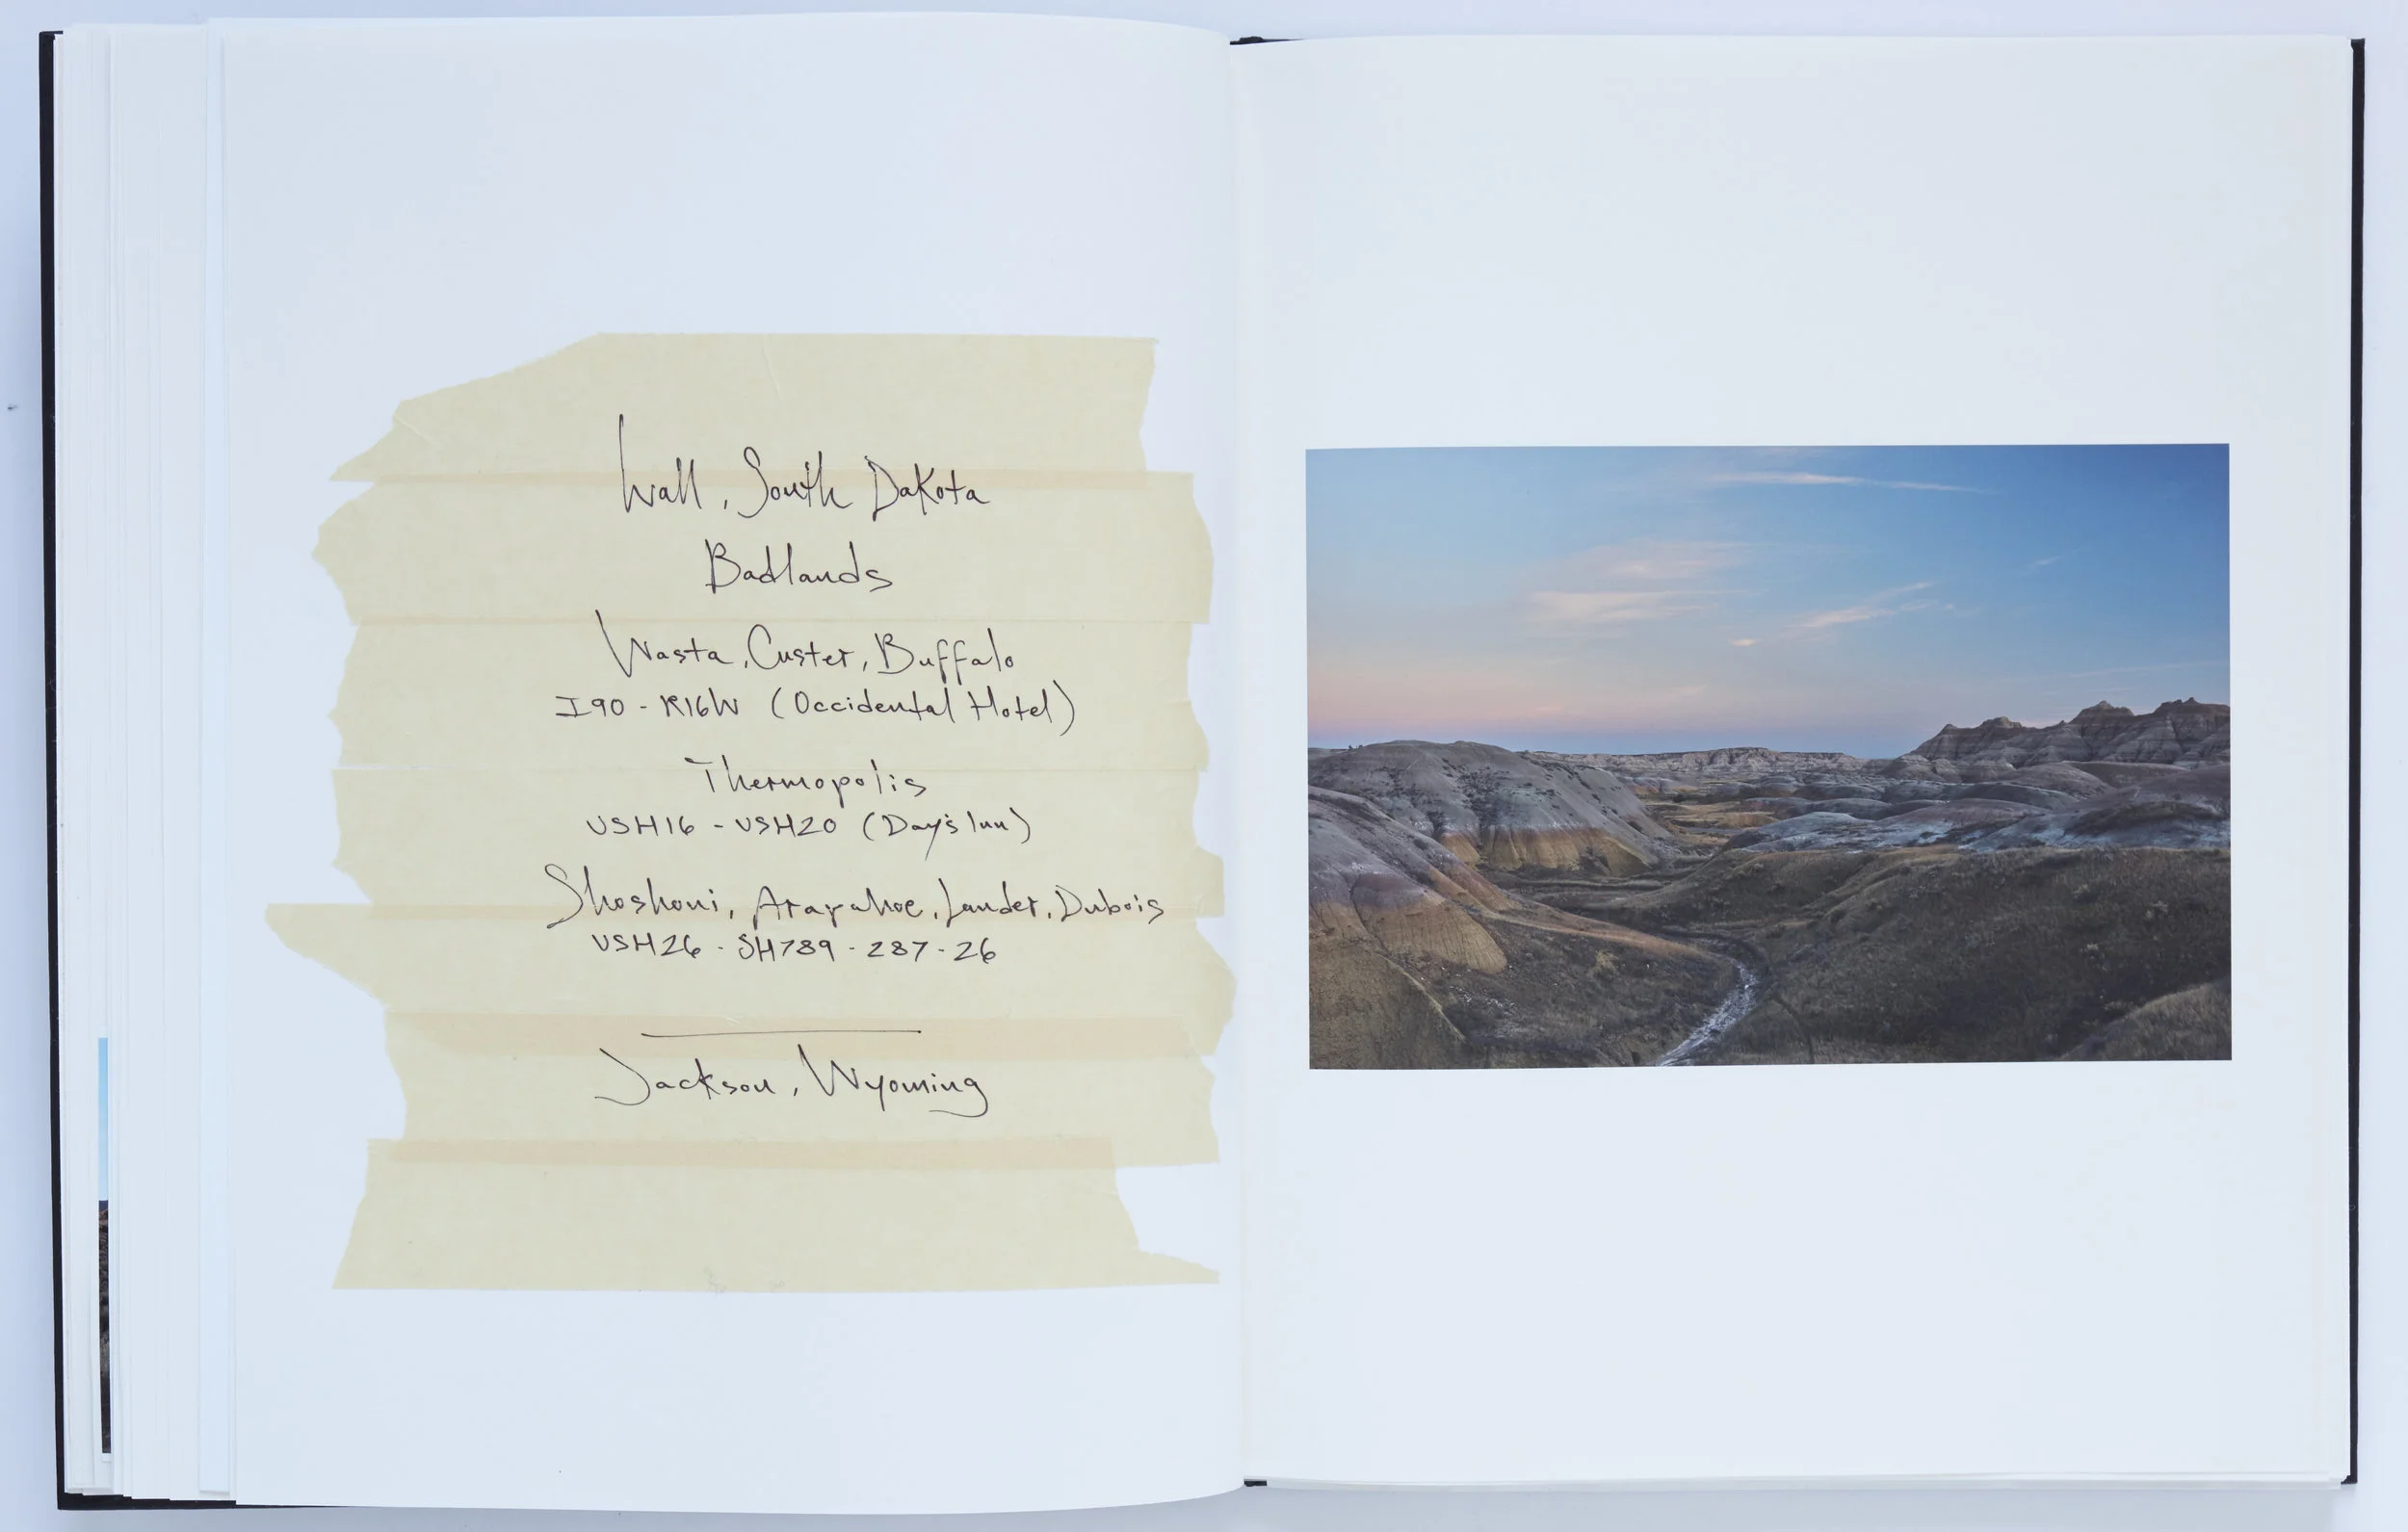 Wall, South Dakota
Badlands
Wasta, Custer, Buffalo
I90 - R16W (Occidental Hotel)
Thermopolis
USH16 - USH20 (Day's Inn)
Shoshoni, Arapahoe, Lander, Dubois
USH26 - SH789 - 287 - 26
Jackson, Wyoming